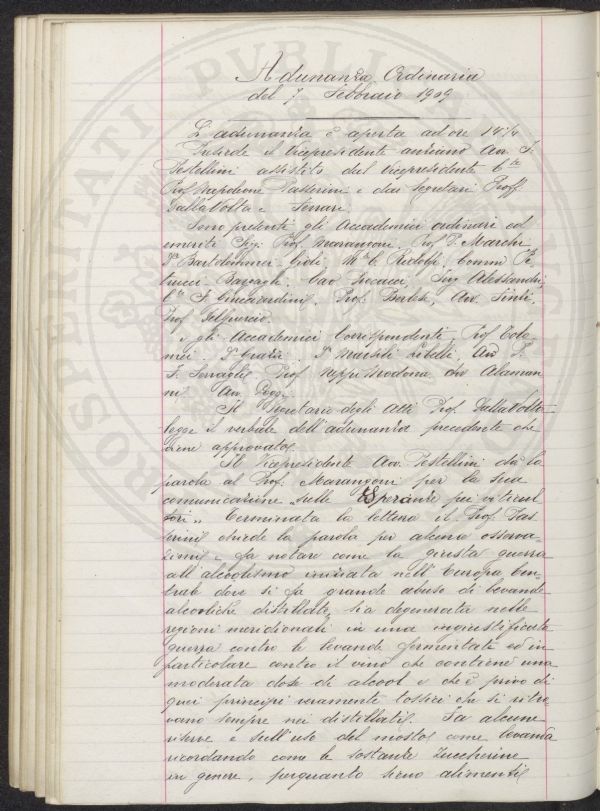 Adunanza Ordinaria
del 7 Febbraio 1909
L'adunanza è aperta ad ore 14¼
Presiede il Vicepresidente anziano Avv. F.
Pestellini assistito dal Vicepresidente Cte
Prof Napoleone Passerini e dai segretari Proff.
Dalla Volta e Ferrari.
Sono presenti gli Accademici ordinari ed
emeriti Sigi: Prof. Marangoni. Prof. P. Marchi
Dr Bartolommei Gioli. Mse C. Ridolfi. Comm Pe
trucci. Cav. Ing Alessandri
Cte F. Guicciardini. Prof. Bertelli, Avv.
Prof Del Guercio.
e gli Accademici Corrispondenti Prof Tolo
mei. Dr Grazzi. Dr Marsili Libelli, Avv
F. Serragli, Prof Neppi Modona, Avv Alaman
ni Avv. Poggi.
Il Segretario degli Atti Prof. Dalla Volta
legge il verbale dell'adunanza precedente che
viene approvato.
Il Vicepresidente Avv. Pestellini dà la
parola al Prof. Marangoni per la sua
comunicazione "sulle Speranze pei viticul
tori". Terminata la lettura il Prof. Pas
serini chiede la parola per alcune osserva
zioni e fa notare come la giusta guerra
all'alcoolismo iniziata nell'Europa Cen
trale dove si fa grande abuso di bevande
alcooliche distillate, sia degenerata nelle
regioni meridionali in una ingiustificata
guerra contro le bevande fermentate ed in
particolare contro il vino che contiene una
moderata dose di alcool e che è privo di
quei principi veramente tossici che si ritro
vano sempre nei distillati. Fa alcune
riserve e sull'uso del mosto come bevanda
ricordando come le sostanze zuccherine
in genere, perquanto sieno alimenti